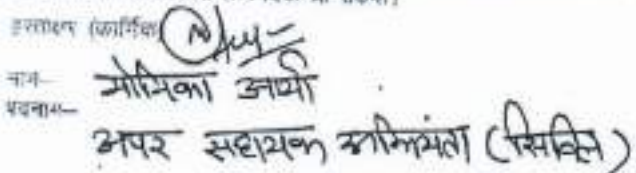 हस्ताक्षर (कार्मिक)
नाम— मोनिका आर्या
पदनाम—
अपर सहायक अभियंता (सिविल)